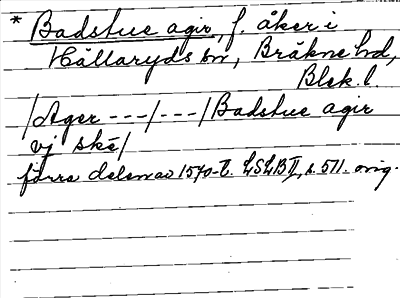 * Badstue agir, f. åker i
Hällaryds sn, Bräkne hd,
Blek. l.
/Ager ---/---/Badstue agir
vj ské/
förra delen av 1570-t. LSLB II, s. 511. orig.